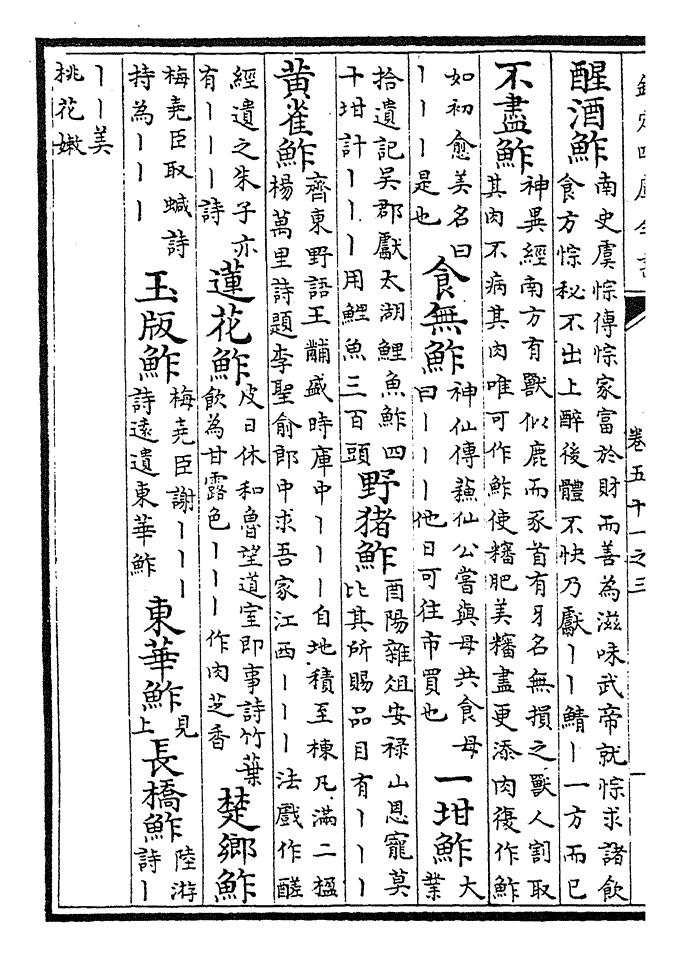 欽定四庫全書
卷五十一之三
醒酒鮓
南史虞悰傳悰家富於財而善為滋味武帝就悰求諸飲
食方悰秘不出上醉後體不快乃獻丨丨鯖丨一方而已
不盡鮓
神異經南方有獸似鹿而豕首有牙名無損之獸人割取
其肉不病其肉唯可作鮓使糝肥美糝盡更添肉復作鮓
如初愈美名曰
丨丨丨是也
食無鮓
神仙傳蘇仙公嘗與母共食母
曰丨丨丨他日可往市買也
一坩鮓
大
業
拾遺記吳郡獻太湖鯉魚鮓四
十坩計丨丨丨用鯉魚三百頭
野猪鮓
酉陽雜俎安禄山恩寵莫
比其所賜品目有丨丨丨
黄雀鮓
齊東野語王黼盛時庫中丨丨丨自地積至棟凡滿二楹
楊萬里詩題李聖俞郎中求吾家江西丨丨丨法戲作醝
經遺之朱子亦
有丨丨丨詩
蓮花鮓
皮日休和魯望道室即事詩竹葉
飲為甘露色丨丨丨作肉芝香
楚鄉鮓
梅堯臣取蝛詩
持為丨丨丨
玉版鮓
梅堯臣謝丨丨丨
詩遠遺東華鮓
東華鮓
見
上
長橋鮓
陸游
詩丨
丨丨美
桃花嫩